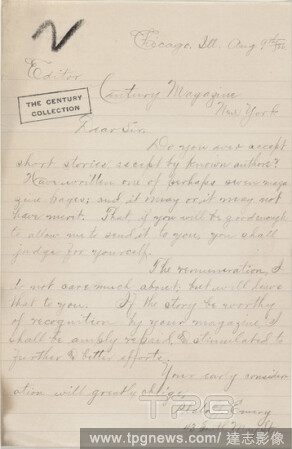 Chicago, Ill. Aug 9th/
Editor,
Century Magazine
New York
THE CENTURY
COLLECTION
Dear Sir,
Do you ever accept
short stories except by known authors?
Have written one of perhaps seven maga
zine pages; and it may or it may not
have merit. That, if you will be good enough
to allow me to send it to you, you shall
judge for yourself.
The remuneration I
do not care much about; but will leave
that to you. If the story be worthy
of recognition by your magazine I
shall be amply repaid & stimulated to
further & better efforts.
Your early consider
ation will greatly oblige,
Emery
TPG
www.tpgnews.com / 達志影像